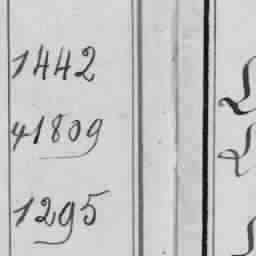 1442
41809
1295